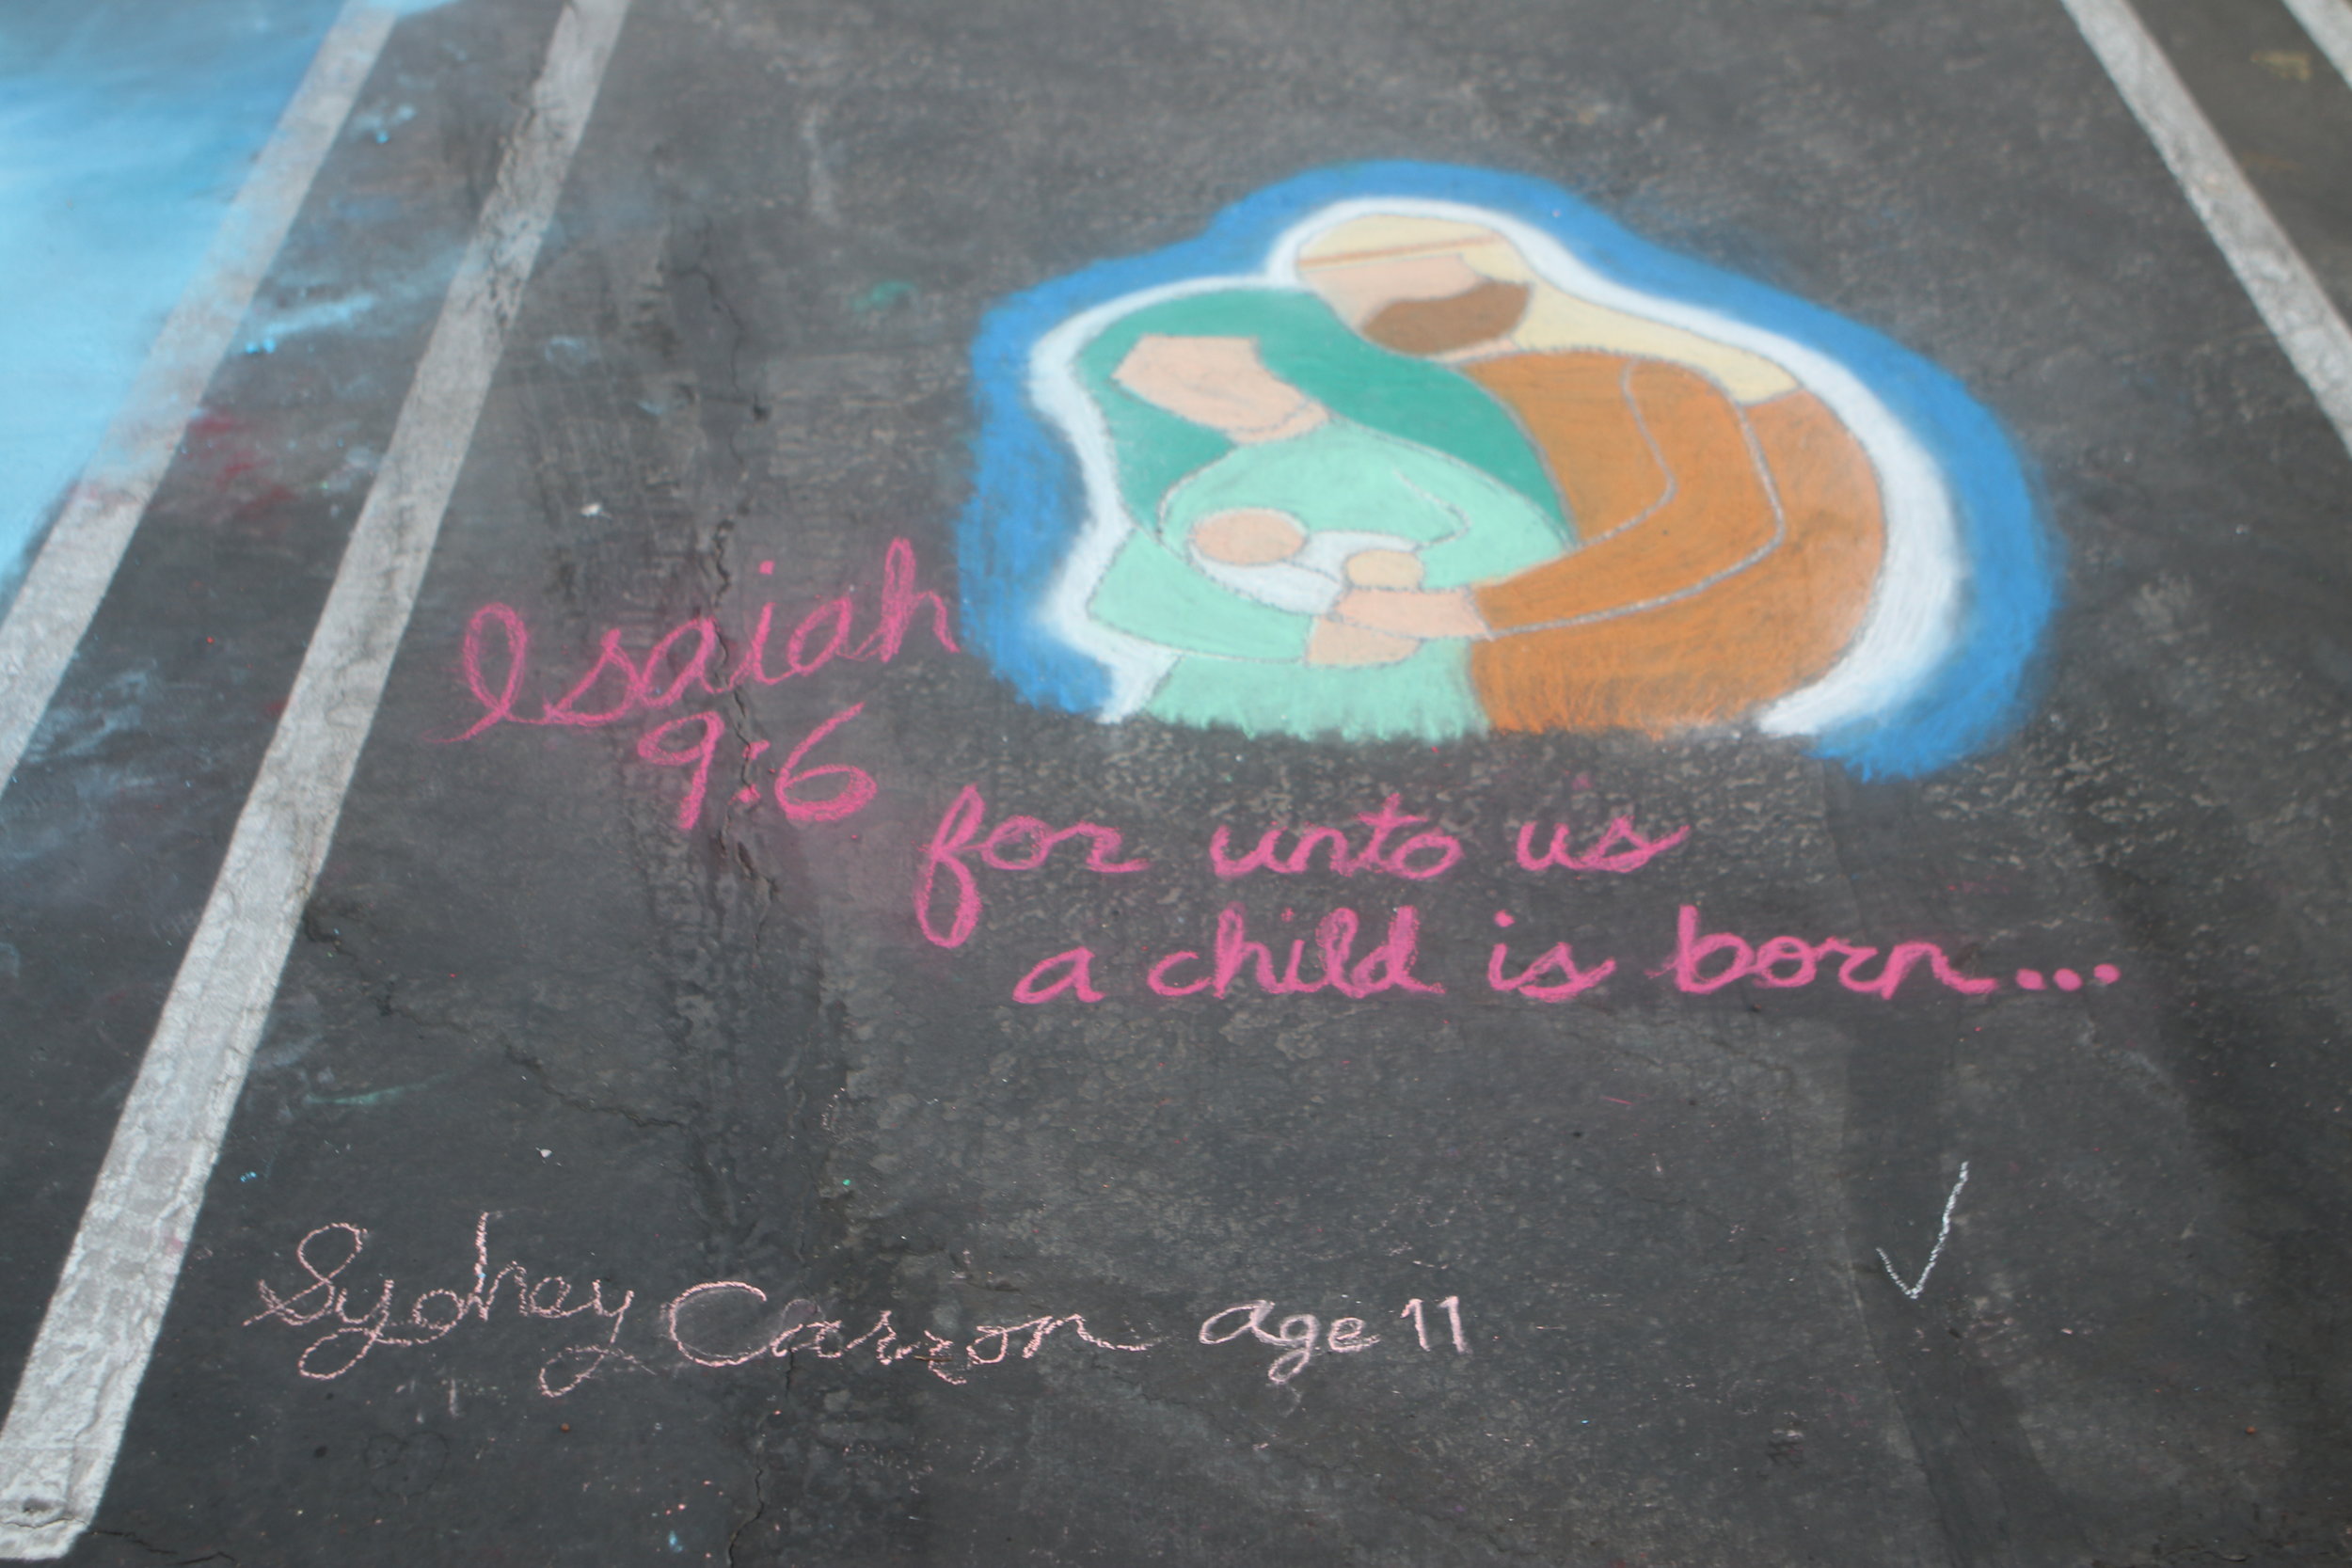 Isaiah
9:6
for unto us
a child is born...
Sydney Carzon age 11